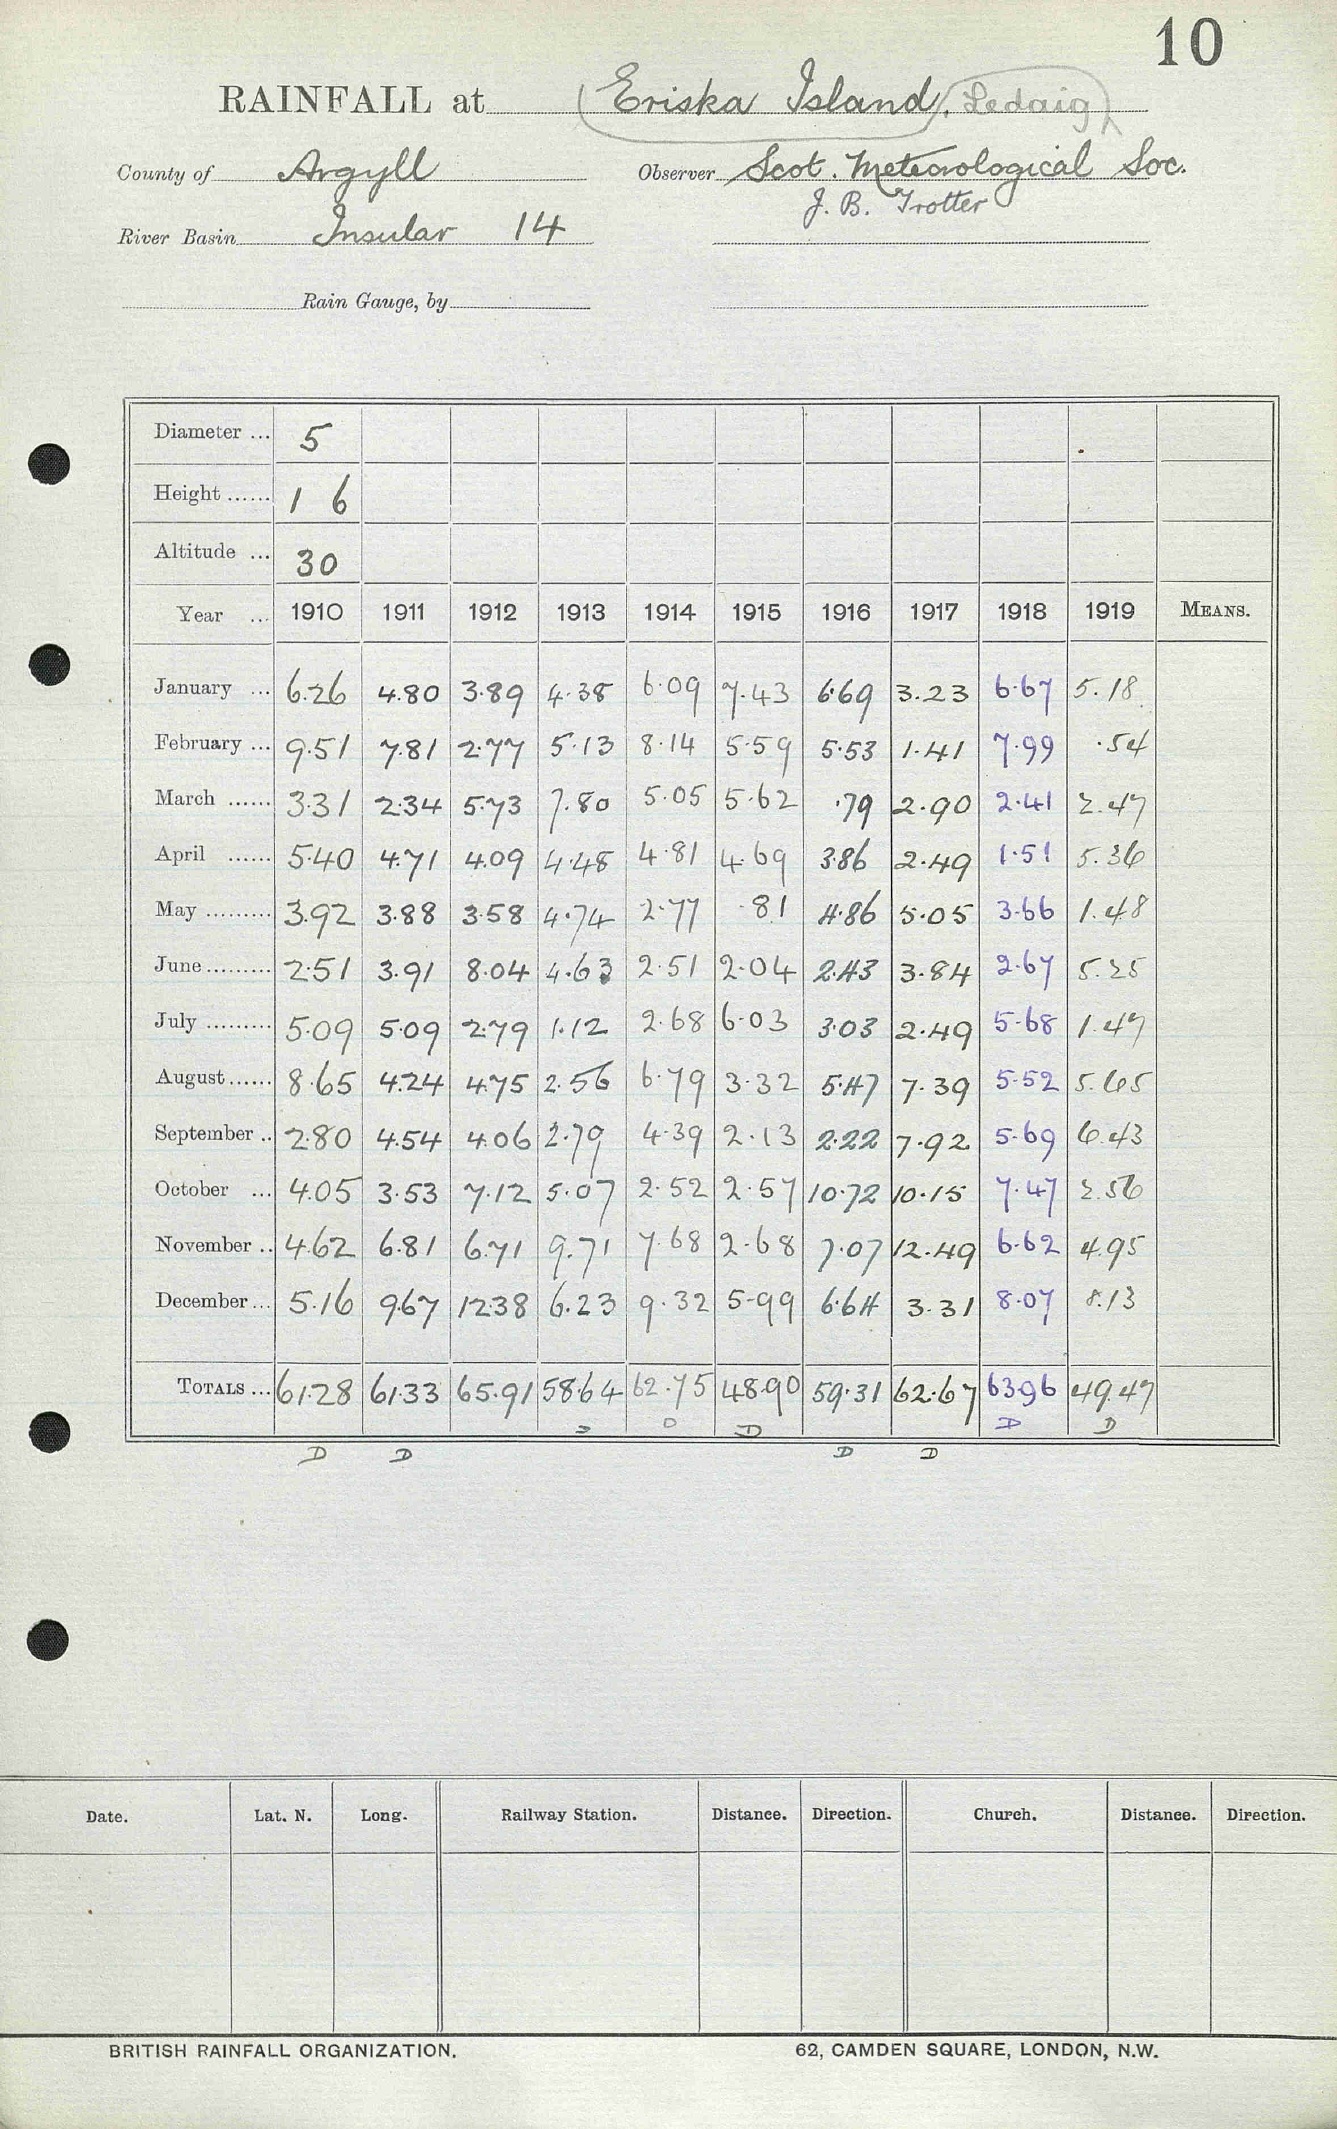 10
RAINFALL at (Eriska Island). Ledaig
County of Argyll Observer Scot. Meteorological Soc.
J. B. Trotter
River Basin Insular 14
Rain Gauge, by
Diameter ... 5
Height ...... 1 6
Altitude ... 30
Year ... 1910 1911 1912 1913 1914 1915 1916 1917 1918 1919 MEANS.
January ... 6.26 4.80 3.89 4.38 6.09 7.43 6.69 3.23 6.67 5.18
February ... 9.51 7.81 2.77 5.13 8.14 5.59 5.53 1.41 7.99 .54
March ...... 3.31 2.34 5.73 7.80 5.05 5.62 .79 2.90 2.41 2.47
April ...... 5.40 4.71 4.09 4.48 4.81 4.69 3.86 2.49 1.51 5.36
May ......... 3.92 3.88 3.58 4.74 2.77 .81 4.86 5.05 3.66 1.48
June ......... 2.51 3.91 8.04 4.63 2.51 2.04 2.43 3.84 2.67 5.25
July ......... 5.09 5.09 2.79 1.12 2.68 6.03 3.03 2.49 5.68 1.47
August ...... 8.65 4.24 4.75 2.56 6.79 3.32 5.47 7.39 5.52 5.65
September .. 2.80 4.54 4.06 2.79 4.39 2.13 2.22 7.92 5.69 6.43
October ... 4.05 3.53 7.12 5.07 2.52 2.57 10.72 10.15 7.47 2.56
November .. 4.62 6.81 6.71 9.71 7.68 2.68 7.07 12.49 6.62 4.95
December ... 5.16 9.67 12.38 6.23 9.32 5.99 6.64 3.31 8.07 8.13
TOTALS ... 61.28 61.33 65.91 58.64 62.75 48.90 59.31 62.67 63.96 49.47
D D D D D
D D D D
Date. Lat. N. Long. Railway Station. Distance. Direction. Church. Distance. Direction.
BRITISH RAINFALL ORGANIZATION. 62, CAMDEN SQUARE, LONDON, N.W.